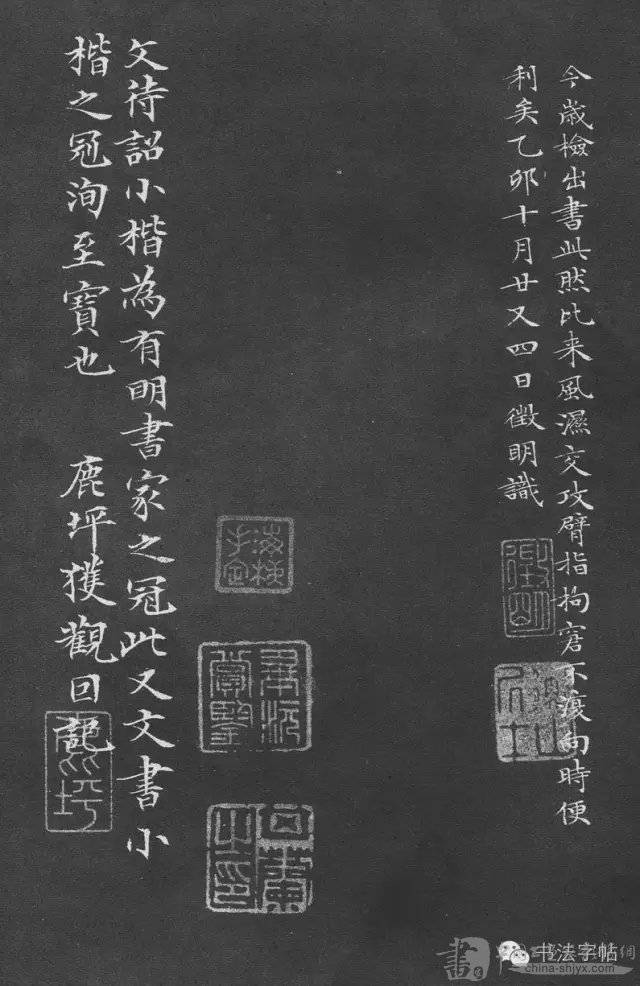 今歲檢出書此然比来風濕交攻臂指拘窘不復向時便
利矣乙卯十月廿又四日徵明識
徵明
文待詔小楷為有明書家之冠此又文書小
楷之冠洵至寶也 鹿坪獲觀回記
书法字帖
china-shjyx.com